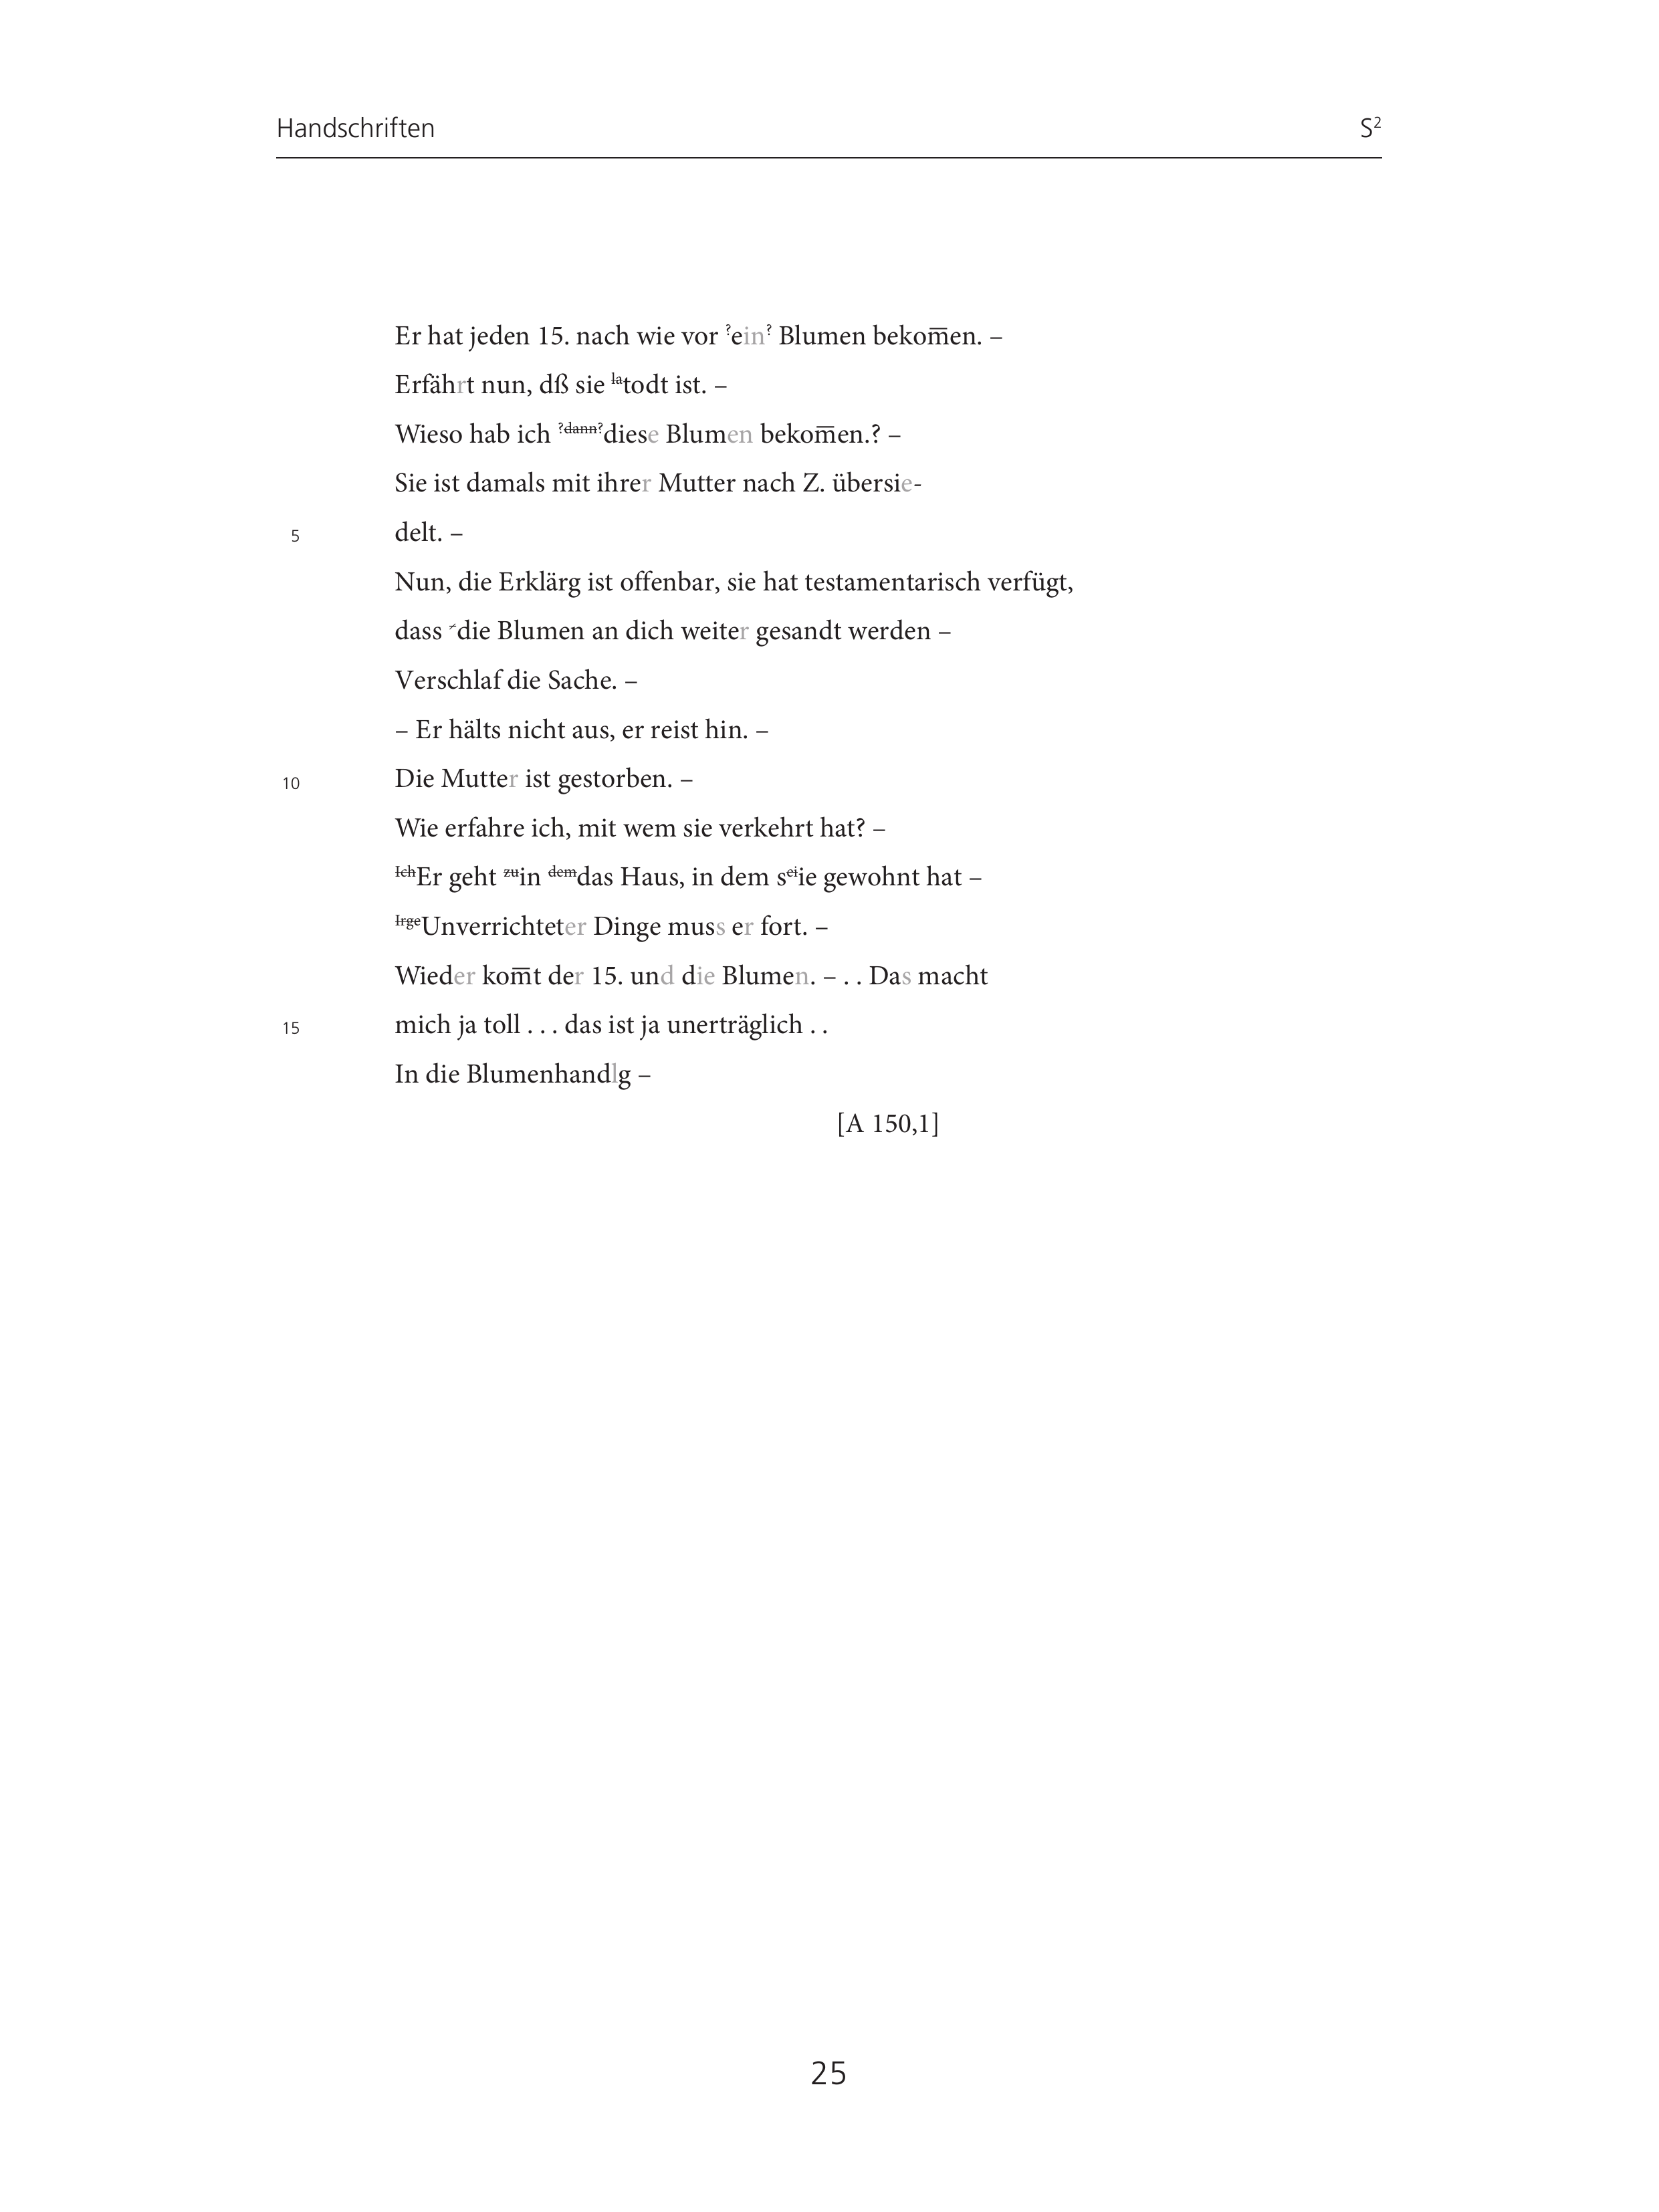 Handschriften S²
Er hat jeden 15. nach wie vor ?ein? Blumen bekom̅en. –
Erfährt nun, dß sie latodt ist. –
Wieso hab ich ?dann?diese Blumen bekom̅en.? –
Sie ist damals mit ihrer Mutter nach Z. übersie-
5 delt. –
Nun, die Erklärg ist offenbar, sie hat testamentarisch verfügt,
dass die Blumen an dich weiter gesandt werden –
Verschlaf die Sache. –
– Er hälts nicht aus, er reist hin. –
10 Die Mutter ist gestorben. –
Wie erfahre ich, mit wem sie verkehrt hat? –
IchEr geht zuin demdas Haus, in dem seiie gewohnt hat –
IrgeUnverrichteter Dinge muss er fort. –
Wieder kom̅t der 15. und die Blumen. – . . Das macht
15 mich ja toll . . . das ist ja unerträglich . .
In die Blumenhandlg –
[A 150,1]
25